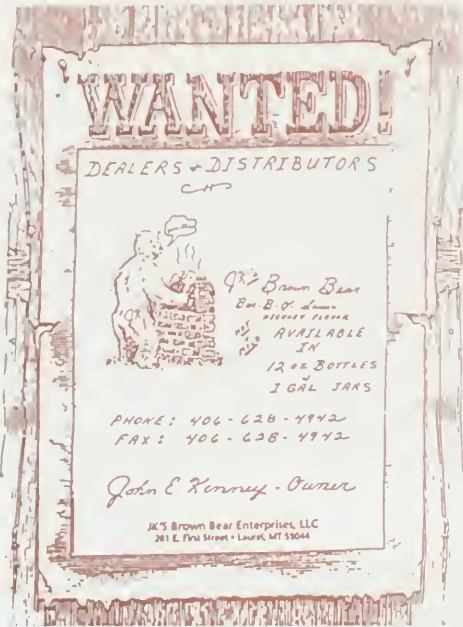 WANTED!
DEALERS & DISTRIBUTORS
JK's Brown Bear
Bar-B-Q Sauce
HICKORY FLAVOR
AVAILABLE
IN
12 oz BOTTLES
&
1 GAL JARS
PHONE: 406-628-4942
FAX: 406-628-4942
John E Kenney - Owner
JK'S Brown Bear Enterprises, LLC
201 E. First Street • Laurel, MT 59044